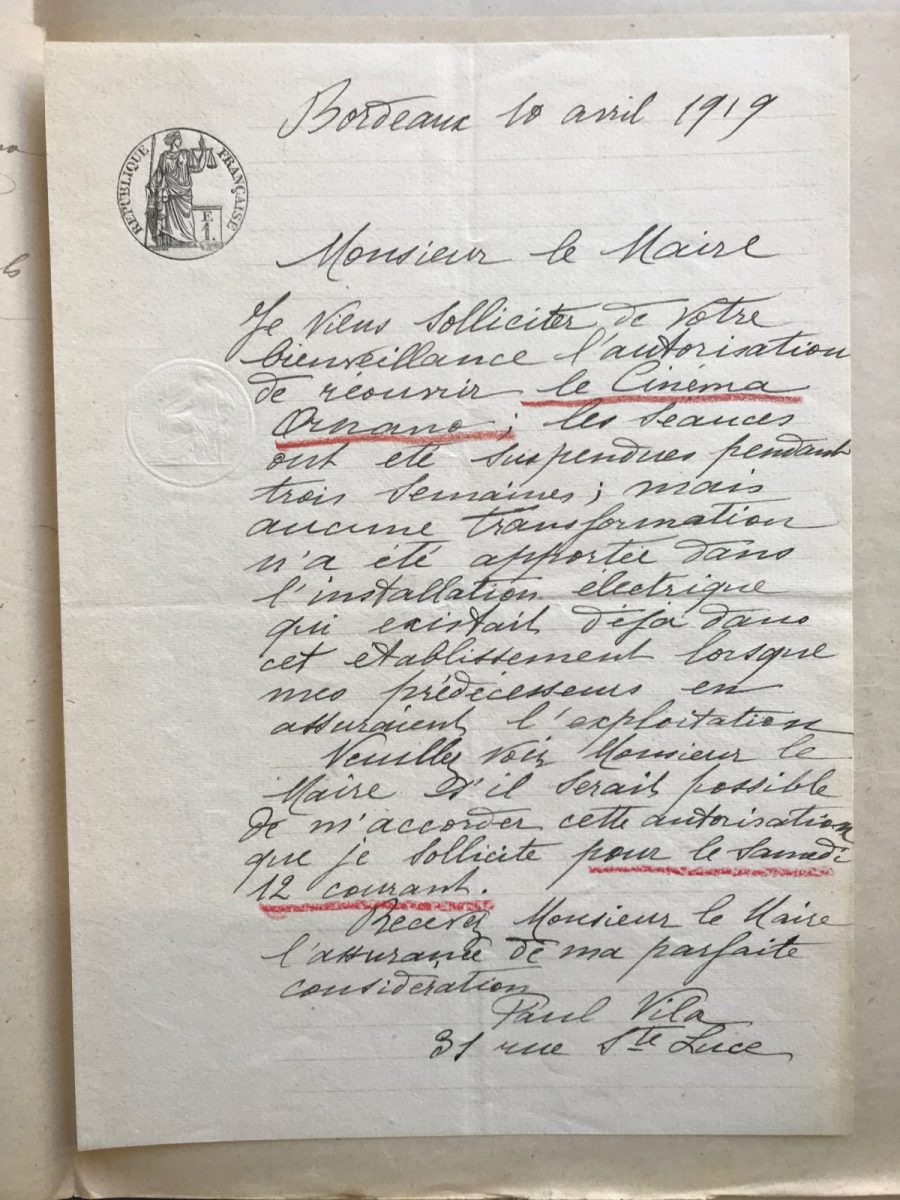 Bordeaux 10 avril 1919
REPUBLIQUE FRANÇAISE
F.
1.
Monsieur le Maire
Je viens solliciter de votre
bienveillance l'autorisation
de réouvrir le Cinéma
Ornano ; les séances
ont été suspendues pendant
trois semaines ; mais
aucune transformation
n'a été apportée dans
l'installation électrique
qui existait déja dans
cet etablissement lorsque
mes prédécesseurs en
assuraient l'exploitation
Veuillez voir Monsieur le
Maire s'il serait possible
de m'accorder cette autorisation
que je sollicite pour le samedi
12 courant.
Recevez Monsieur le Maire
l'assurance de ma parfaite
considération
Paul Vila
31 rue Ste Luce